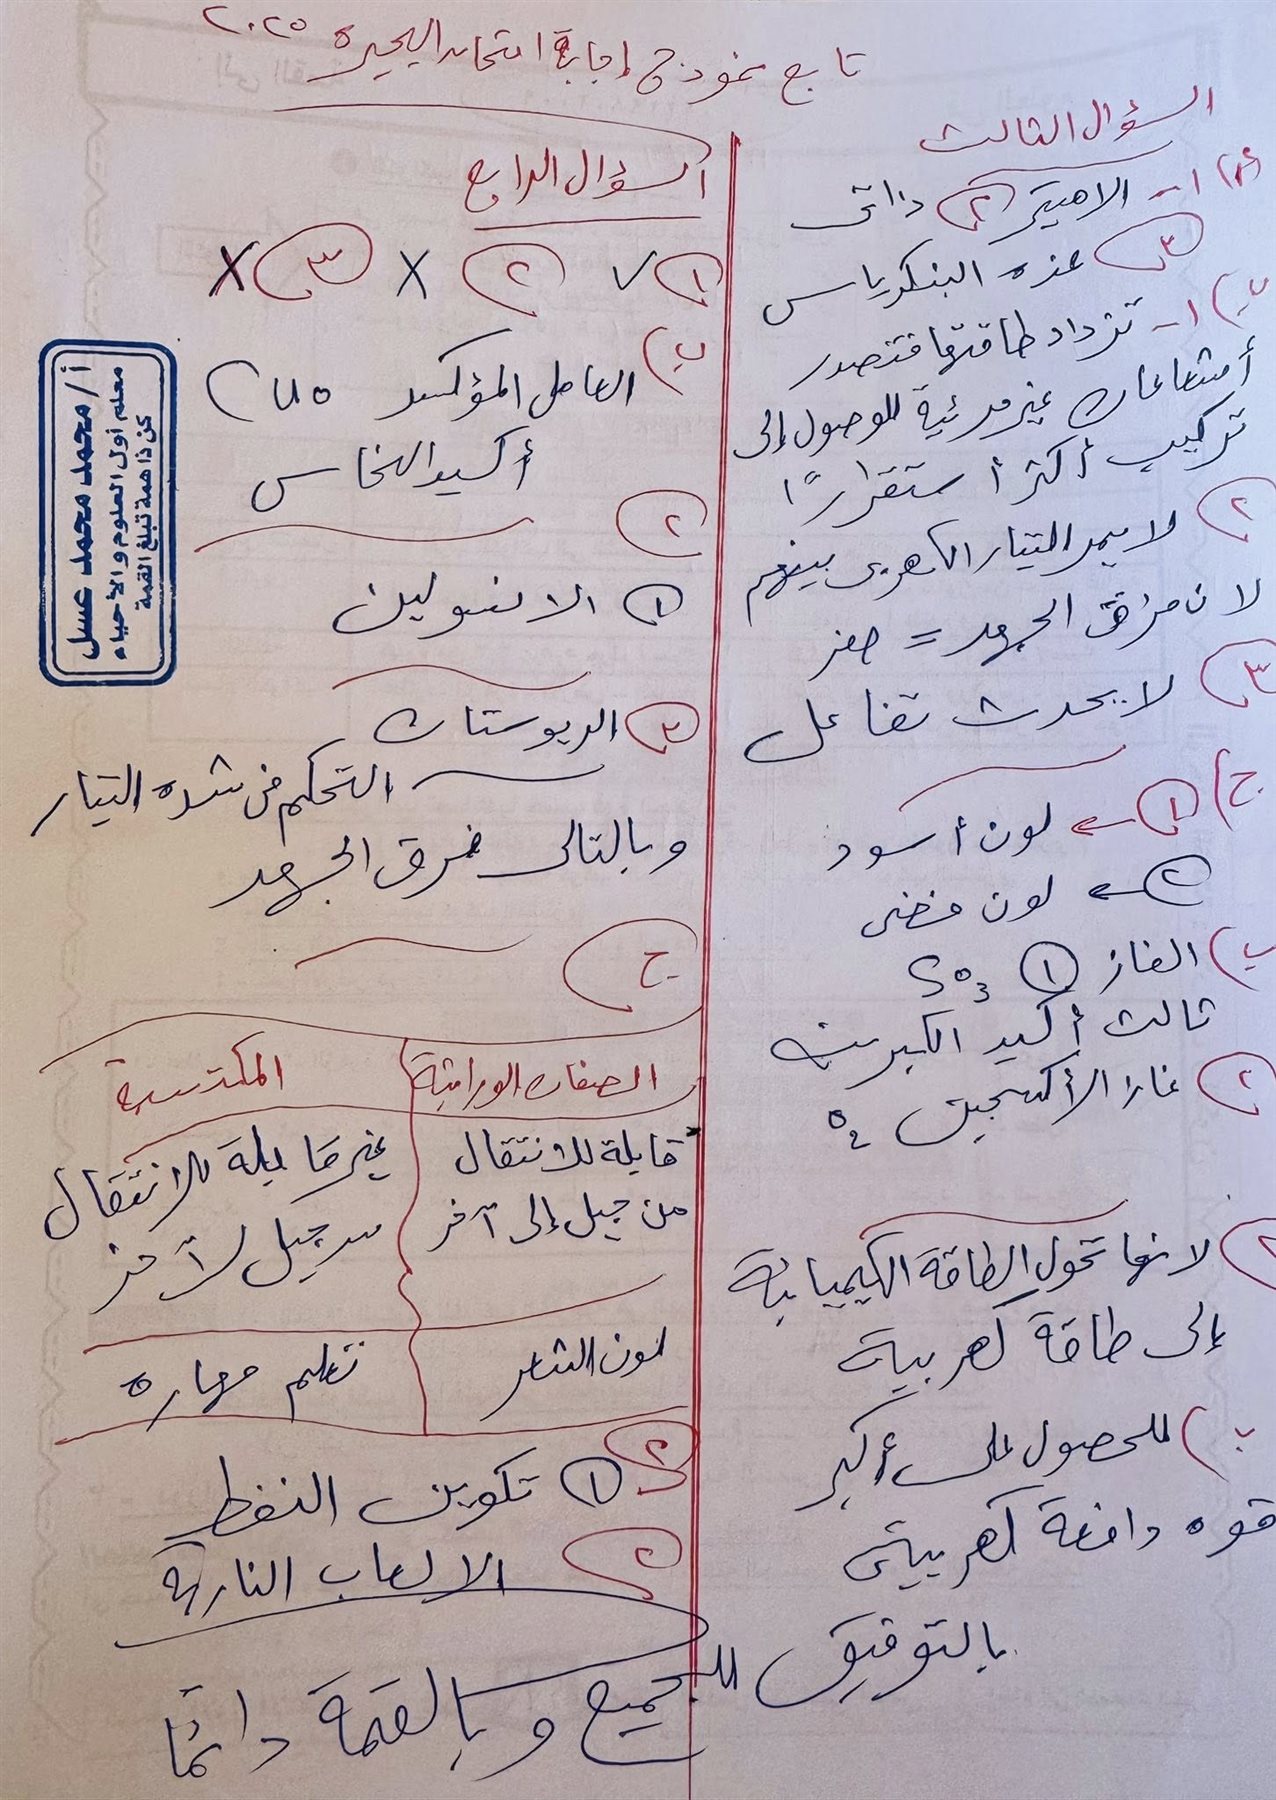 تابع نموذج إجابة امتحان البحيره ٢٠٢٥
السؤال الثالث
(أ) ١- الاميتر (٢) ذاتى
(٣) غده البنكرياس
ب) ١- تزداد طاقتها فتصدر
أشعاعات غير مرئية للوصول إلى
تركيب أكثر أستقرارًا
(٢) لا يمر التيار الكهربى بينهم
لان فرق الجهد = صفر
(٣) لا يحدث تفاعل
ج) (١) ← لون أسود
(٢) ← لون فضى
ب) الغاز (١) SO3
ثالث أكسيد الكبريت
(٢) غاز الأكسجين O2
(٢) لانها تحول الطاقة الكيميائية
إلى طاقة كهربية
ب) للحصول على أكبر
قوه دافعة كهربيتى
السؤال الرابع
(١) √ (٢) X (٣) X
ب) العامل المؤكسد CuO
أكسيد النحاس
(٢)
(١) الانسولين
(٢) الريوستات
التحكم فى شده التيار
وبالتالى فرق الجهد
ج)
الصفات الوراثية المكتسبة
قابلة للانتقال غير قابلة للانتقال
من جيل إلى آخر من جيل لآخر
لون الشعر تعلم مهاره
(٢) (١) تكوين النفط
(٢) الالعاب النارية
بالتوفيق للجميع وبالقمة دائمًا
أ/ محمد محمد عسل
معلم أول العلوم والأحياء
كن ذا همة تبلغ القمة